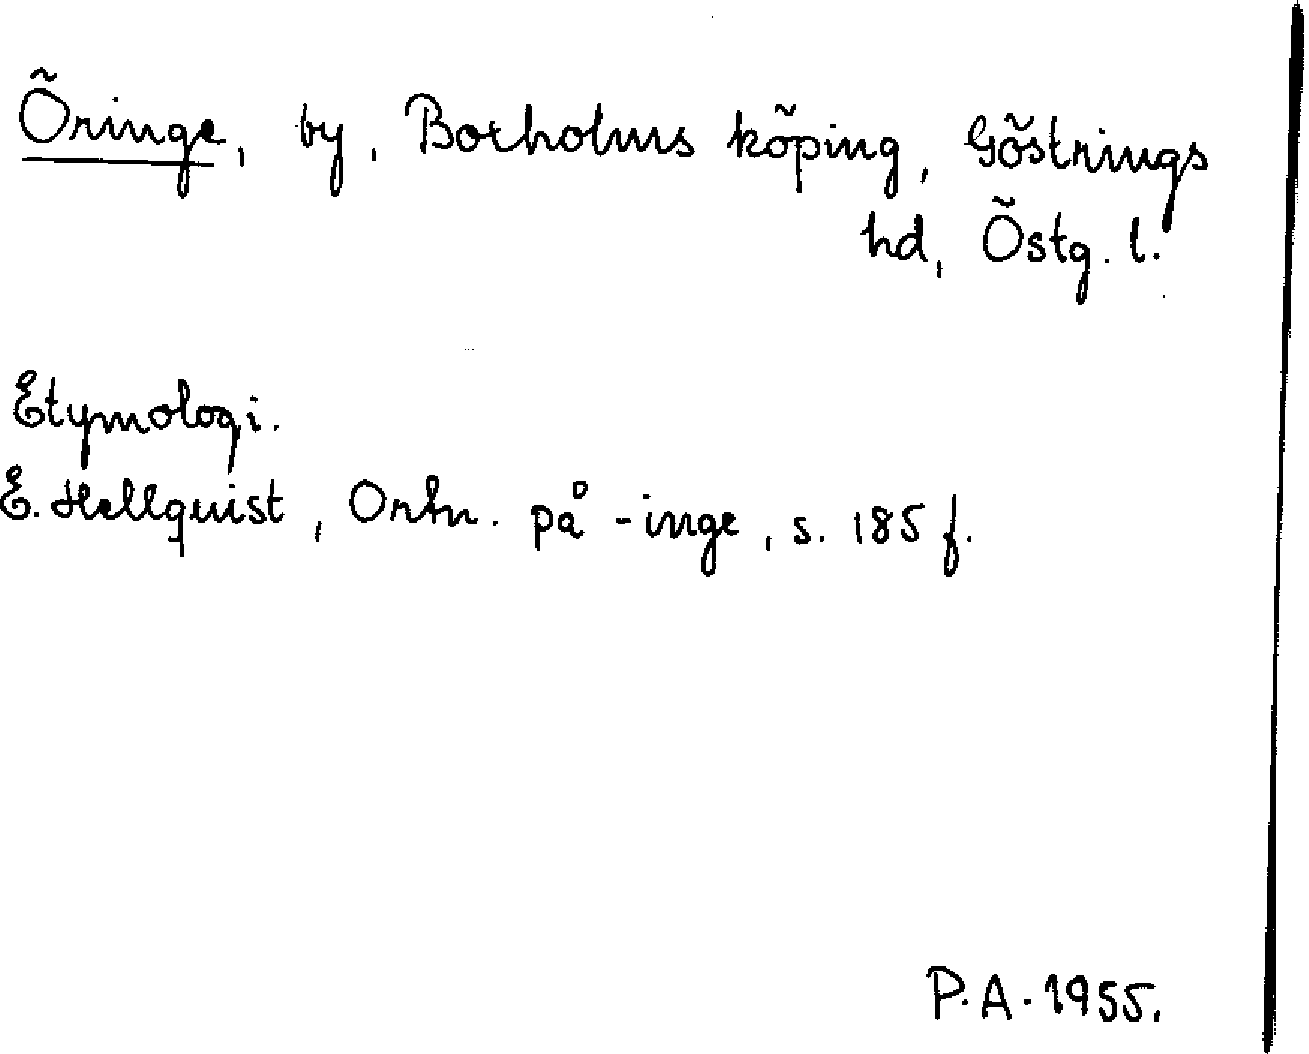 Öringe, by, Borholms köping, Göstrings
hd, Östg. l.
Etymologi.
E. Hellquist, Ortn. på -inge, s. 185 f.
P.A. 1955.